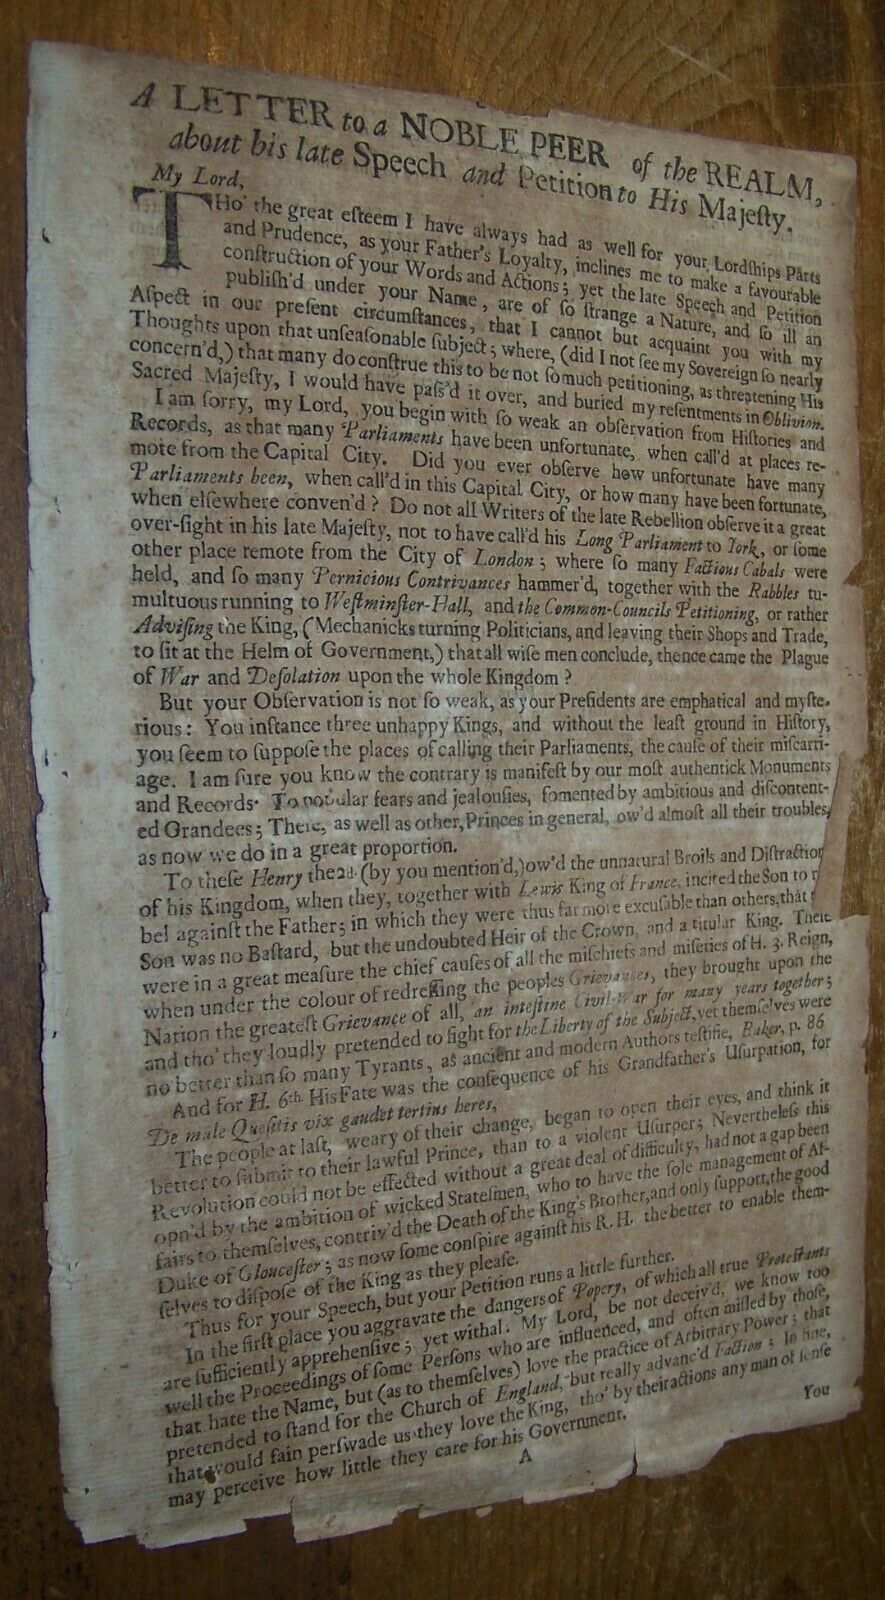 A LETTER to a NOBLE PEER of the REALM,
about his late Speech and Petition to His Majeſty.
My Lord,
THo' the great eſteem I have always had as well for your Lordſhips Parts
and Prudence, as your Father's Loyalty, inclines me to make a favourable
conſtruction of your Words and Actions; yet the late Speech and Petition
publiſh'd under your Name, are of ſo ſtrange a Nature, and ſo ill an
Aſpect in our preſent circumſtances, that I cannot but acquaint you with my
Thoughts upon that unſeaſonable ſubject; where, (did I not ſee my Sovereign ſo nearly
concern'd,) that many do conſtrue this to be not ſo much petitioning, as threatening His
Sacred Majeſty, I would have paſs'd it over, and buried my reſentments in Oblivion.
I am ſorry, my Lord, you begin with ſo weak an obſervation from Hiſtories and
Records, as that many Parliaments have been unfortunate, when call'd at places re-
mote from the Capital City. Did you ever obſerve how unfortunate have many
Parliaments been, when call'd in this Capital City, or how many have been fortunate,
when elſewhere conven'd? Do not all Writers of the late Rebellion obſerve it a great
over-ſight in his late Majeſty, not to have call'd his Long Parliament to York, or ſome
other place remote from the City of London; where ſo many Factious Cabals were
held, and ſo many Pernicious Contrivances hammer'd, together with the Rabbles tu-
multuous running to Weſtminſter-Hall, and the Common-Councils Petitioning, or rather
Adviſing the King, (Mechanicks turning Politicians, and leaving their Shops and Trade,
to ſit at the Helm of Government,) that all wiſe men conclude, thence came the Plague
of War and Deſolation upon the whole Kingdom?
But your Obſervation is not ſo weak, as your Preſidents are emphatical and myſte-
rious: You inſtance three unhappy Kings, and without the leaſt ground in Hiſtory,
you ſeem to ſuppoſe the places of calling their Parliaments, the cauſe of their miſcarri-
age. I am ſure you know the contrary is manifeſt by our moſt authentick Monuments
and Records. To popular fears and jealouſies, fomented by ambitious and diſcontent-
ed Grandees; Theſe, as well as other, Princes in general, ow'd almoſt all their troubles,
as now we do in a great proportion.
To theſe Henry the 2d. (by you mention'd,) ow'd the unnatural Broils and Diſtraction
of his Kingdom, when they, together with Lewis King of France, incited the Son to r
bel againſt the Father; in which they were thus far more excuſable than others, that
Son was no Baſtard, but the undoubted Heir of the Crown, and a titular King. Theſe
were in a great meaſure the chief cauſes of all the miſchiefs and miſeries of H. 3. Reign,
when under the colour of redreſſing the peoples Grievances, they brought upon the
Nation the greateſt Grievance of all, an inteſtine Civil-War for many years together;
and tho' they loudly pretended to fight for the Liberty of the Subject, yet themſelves were
no better than ſo many Tyrants, as ancient and modern Authors teſtifie, Baker, p. 86
And for H. 6th. His Fate was the conſequence of his Grandfather's Uſurpation, for
De male Queſitis vix gaudet tertius heres,
The people at laſt, weary of their change, began to open their eyes, and think it
better to ſubmit to their lawful Prince, than to a violent Uſurper; Nevertheleſs this
Revolution could not be effected without a great deal of difficulty, had not a gap been
opn'd by the ambition of wicked Stateſmen, who to have the ſole management of Af-
fairs to themſelves, contriv'd the Death of the King's Brother, and only ſupport, the good
Duke of Gloceſter; as now ſome conſpire againſt his R. H. the better to enable them-
ſelves to diſpoſe of the King as they pleaſe.
Thus for your Speech, but your Petition runs a little further.
In the firſt place you aggravate the dangers of Popery, of which all true Proteſtants
are ſufficiently apprehenſive; yet withal, My Lord, be not deceiv'd, we know too
well the Proceedings of ſome Perſons who are influenced, and often miſled by thoſe,
that hate the Name, but (as to themſelves) love the practice of Arbitrary Power; that
pretended to ſtand for the Church of England, but really advanc'd Faction; In fine,
that would fain perſwade us they love the King, tho' by their actions any man of ſenſe
may perceive how little they care for his Government.
A
You